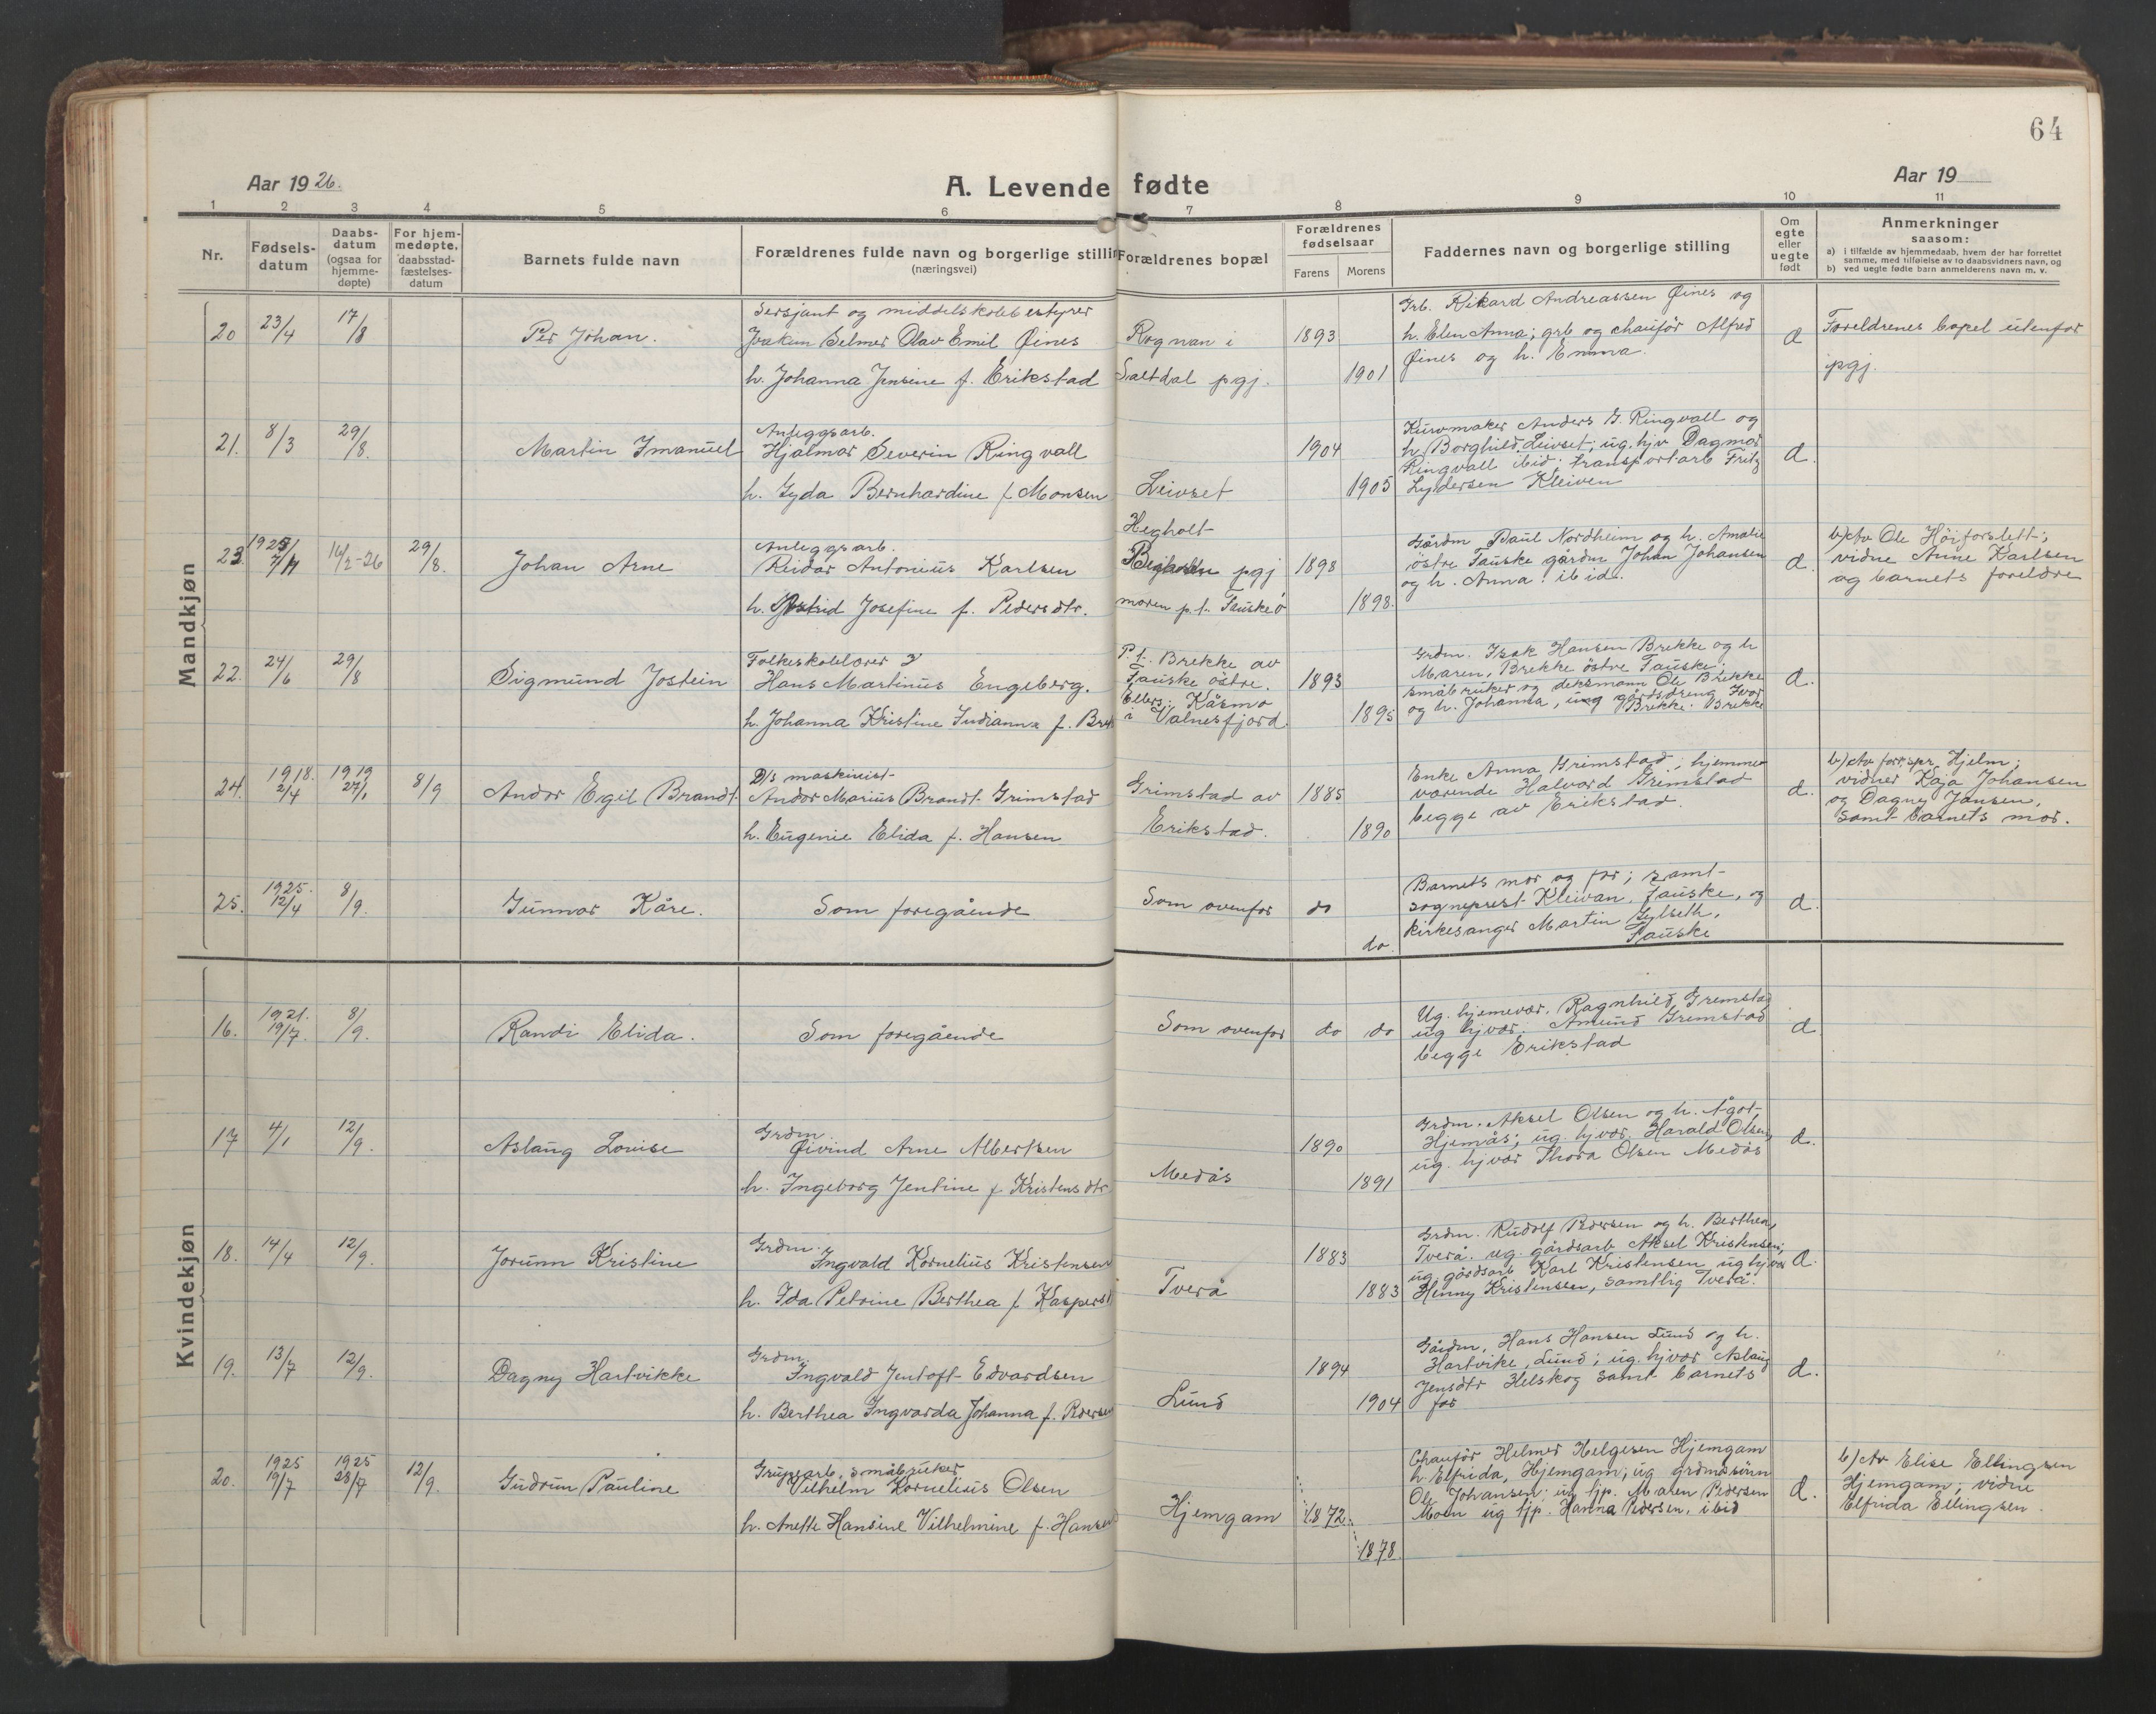 64
Aar 1926.
A. Levende fødte
Aar 19
1 2 3 4 5 6 7 8 9 10 11
Nr.
Fødsels-
datum
Daabs-
datum
(ogsaa for
hjemme-
døpte)
For hjem-
medøpte,
daabsstad-
fæstelses-
datum
Barnets fulde navn
Forældrenes fulde navn og borgerlige stillin
(næringsvei)
Forældrenes bopæl
Forældrenes
fødselsaar
Farens Morens
Faddernes navn og borgerlige stilling
Om
egte
eller
uegte
født
Anmerkninger
saasom:
a) i tilfælde av hjemmedaab, hvem der har forrettet
samme, med tilføielse av to daabsvidners navn, og
b) ved uegte fødte barn anmelderens navn m. v.
Mandkjøn
20 23/4 17/8 Per Johan.
Sersjant og middelskolebestyrer
Joakim Selmer Olav Emil Øines
h. Johanna Jensine f. Erikstad
Rognan i
Saltdal pgj.
1893
1901
Grb. Rikard Andreassen Øines og
h. Elen Anna; grb og chauför Alfred
Øines og h. Emma.
d
Foreldrenes bopel utenfor
pgj.
21. 8/3 29/8. Martin Imanuel
Anleggsarb.
Hjalmar Severin Ringvall
h. Gyda Bernhardine f Monsen
Leivset
1904
1905
Kurvmaker Anders G. Ringvall og
h. Borghild, Leivset; ug. hjv Dagmar
Ringvall ibid; transportarb Fritz
Lydersen Kleiven
d.
23. 1925 7/11 14/2-26 29/8. Johan Arne
Anleggsarb.
Reidar Antonius Karlsen
h. Astrid Josefine f. Pedersdtr.
Hegholt
Beiaren pgj
moren p.t. Fauske ö
1898
1898.
Gårdm Paul Nordheim og h. Amalie
östre Fauske gårdm Johan Johansen
og h. Anna ibid.
d.
b/ Av Ole Höiforslett;
vidne Anne Karlsen
og barnets foreldre
22. 24/6 29/8 Sigmund Jostein
Folkeskolelærer
Hans Martinus Engeberg.
h. Johanna Kristine Indianna f. Brek
P.t. Brekke av
Fauske östre.
Ellers: Kåsmo
i Valnesfjord
1893
1895
Grdm. Isak Hansen Brekke og h
Maren, Brekke östre Fauske;
småbruker og deksmann Ole Brekke
og h. Johanna, ung gårdsdreng Ivar
Brekke. Brekke
d.
24. 1918. 2/4 1919 27/1 8/9 Andor Egil Brandt
D/s maskinist
Andor Marius Brandt Grimstad
h. Eugenie Elida f. Hansen
Grimstad av
Erikstad.
1885
1890
Enke Anna Grimstad, hjemme
værende Halvard Grimstad
begge av Erikstad.
d.
b/ Av forr.spr. Hjelm;
vidner Kaja Johansen
og Dagny Jansen,
samt barnets mor.
25. 1925. 12/4 8/9. Gunnar Kåre.
Som foregående
Som ovenfor
do
do.
Barnets mor og far; samt
sogneprest Kleivan, Fauske, og
kirkesanger Martin Gylseth,
Fauske
d.
Kvindekjøn
16. 1921. 19/7. 8/9. Randi Elida.
Som foregående
Som ovenfor
do do
Ug. hjemevær. Ragnhild Gremstad
ug hjvær. Amund Gremstad
begge Erikstad
d
17 4/1 12/9. Aslaug Louise
Grdm.
Øivind Arne Albertsen
h. Ingeborg Jentine f Kristensdtr
Medås
1890
1891
Grdm. Aksel Olsen og h. Ågot
Hjemås; ug. hjvær. Harald Olsen,
ug. hjvær Thora Olsen Medås
d.
18. 14/4 12/9. Jorunn Kristine
Grdm.
Ingvald Kornelius Kristensen
h. Ida Petrine Berthea f Kaspersd
Tverå
1883
1883
Grdm. Rudolf Pedersen og h. Berthea,
Tverå. ug. gårdsarb Aksel Kristensen;
ug. gårdsarb Karl Kristensen ug hjvær
Henny Kristensen, samtlig Tverå.
d.
19. 13/7 12/9. Dagny Hartvikke
Grdm.
Ingvald Jentoft Edvardsen
h. Berthea Ingvarda Johanna f. Pedersen
Lund
1894
1904
Gårdm. Hans Hansen Lund og h.
Hartvike, Lund; ug. hjvær Aslaug
Jensdtr Helskog samt barnets
far
d.
20. 1925 19/7 1925 28/7 12/9. Gudrun Pauline
Grubearb, småbruker
Vilhelm Kornelius Olsen
h. Anette Hansine Vilhelmine f. Hansen
Hjemgam
1872.
1878.
Chauför Helmer Helgesen Hjemgam
h. Elfrida, Hjemgam; ug grdmdsönn
Ole Johansen; ug tjp. Maren Pedersen
Moen ug tjp. Hanna Pedersen, ibid
d.
b/ Av Elise Ellingsen
Hjemgam; vidne
Elfrida Ellingsen.